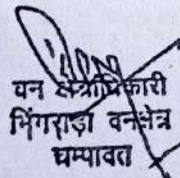 वन क्षेत्राधिकारी
भिंगराड़ा वनक्षेत्र
चम्पावत